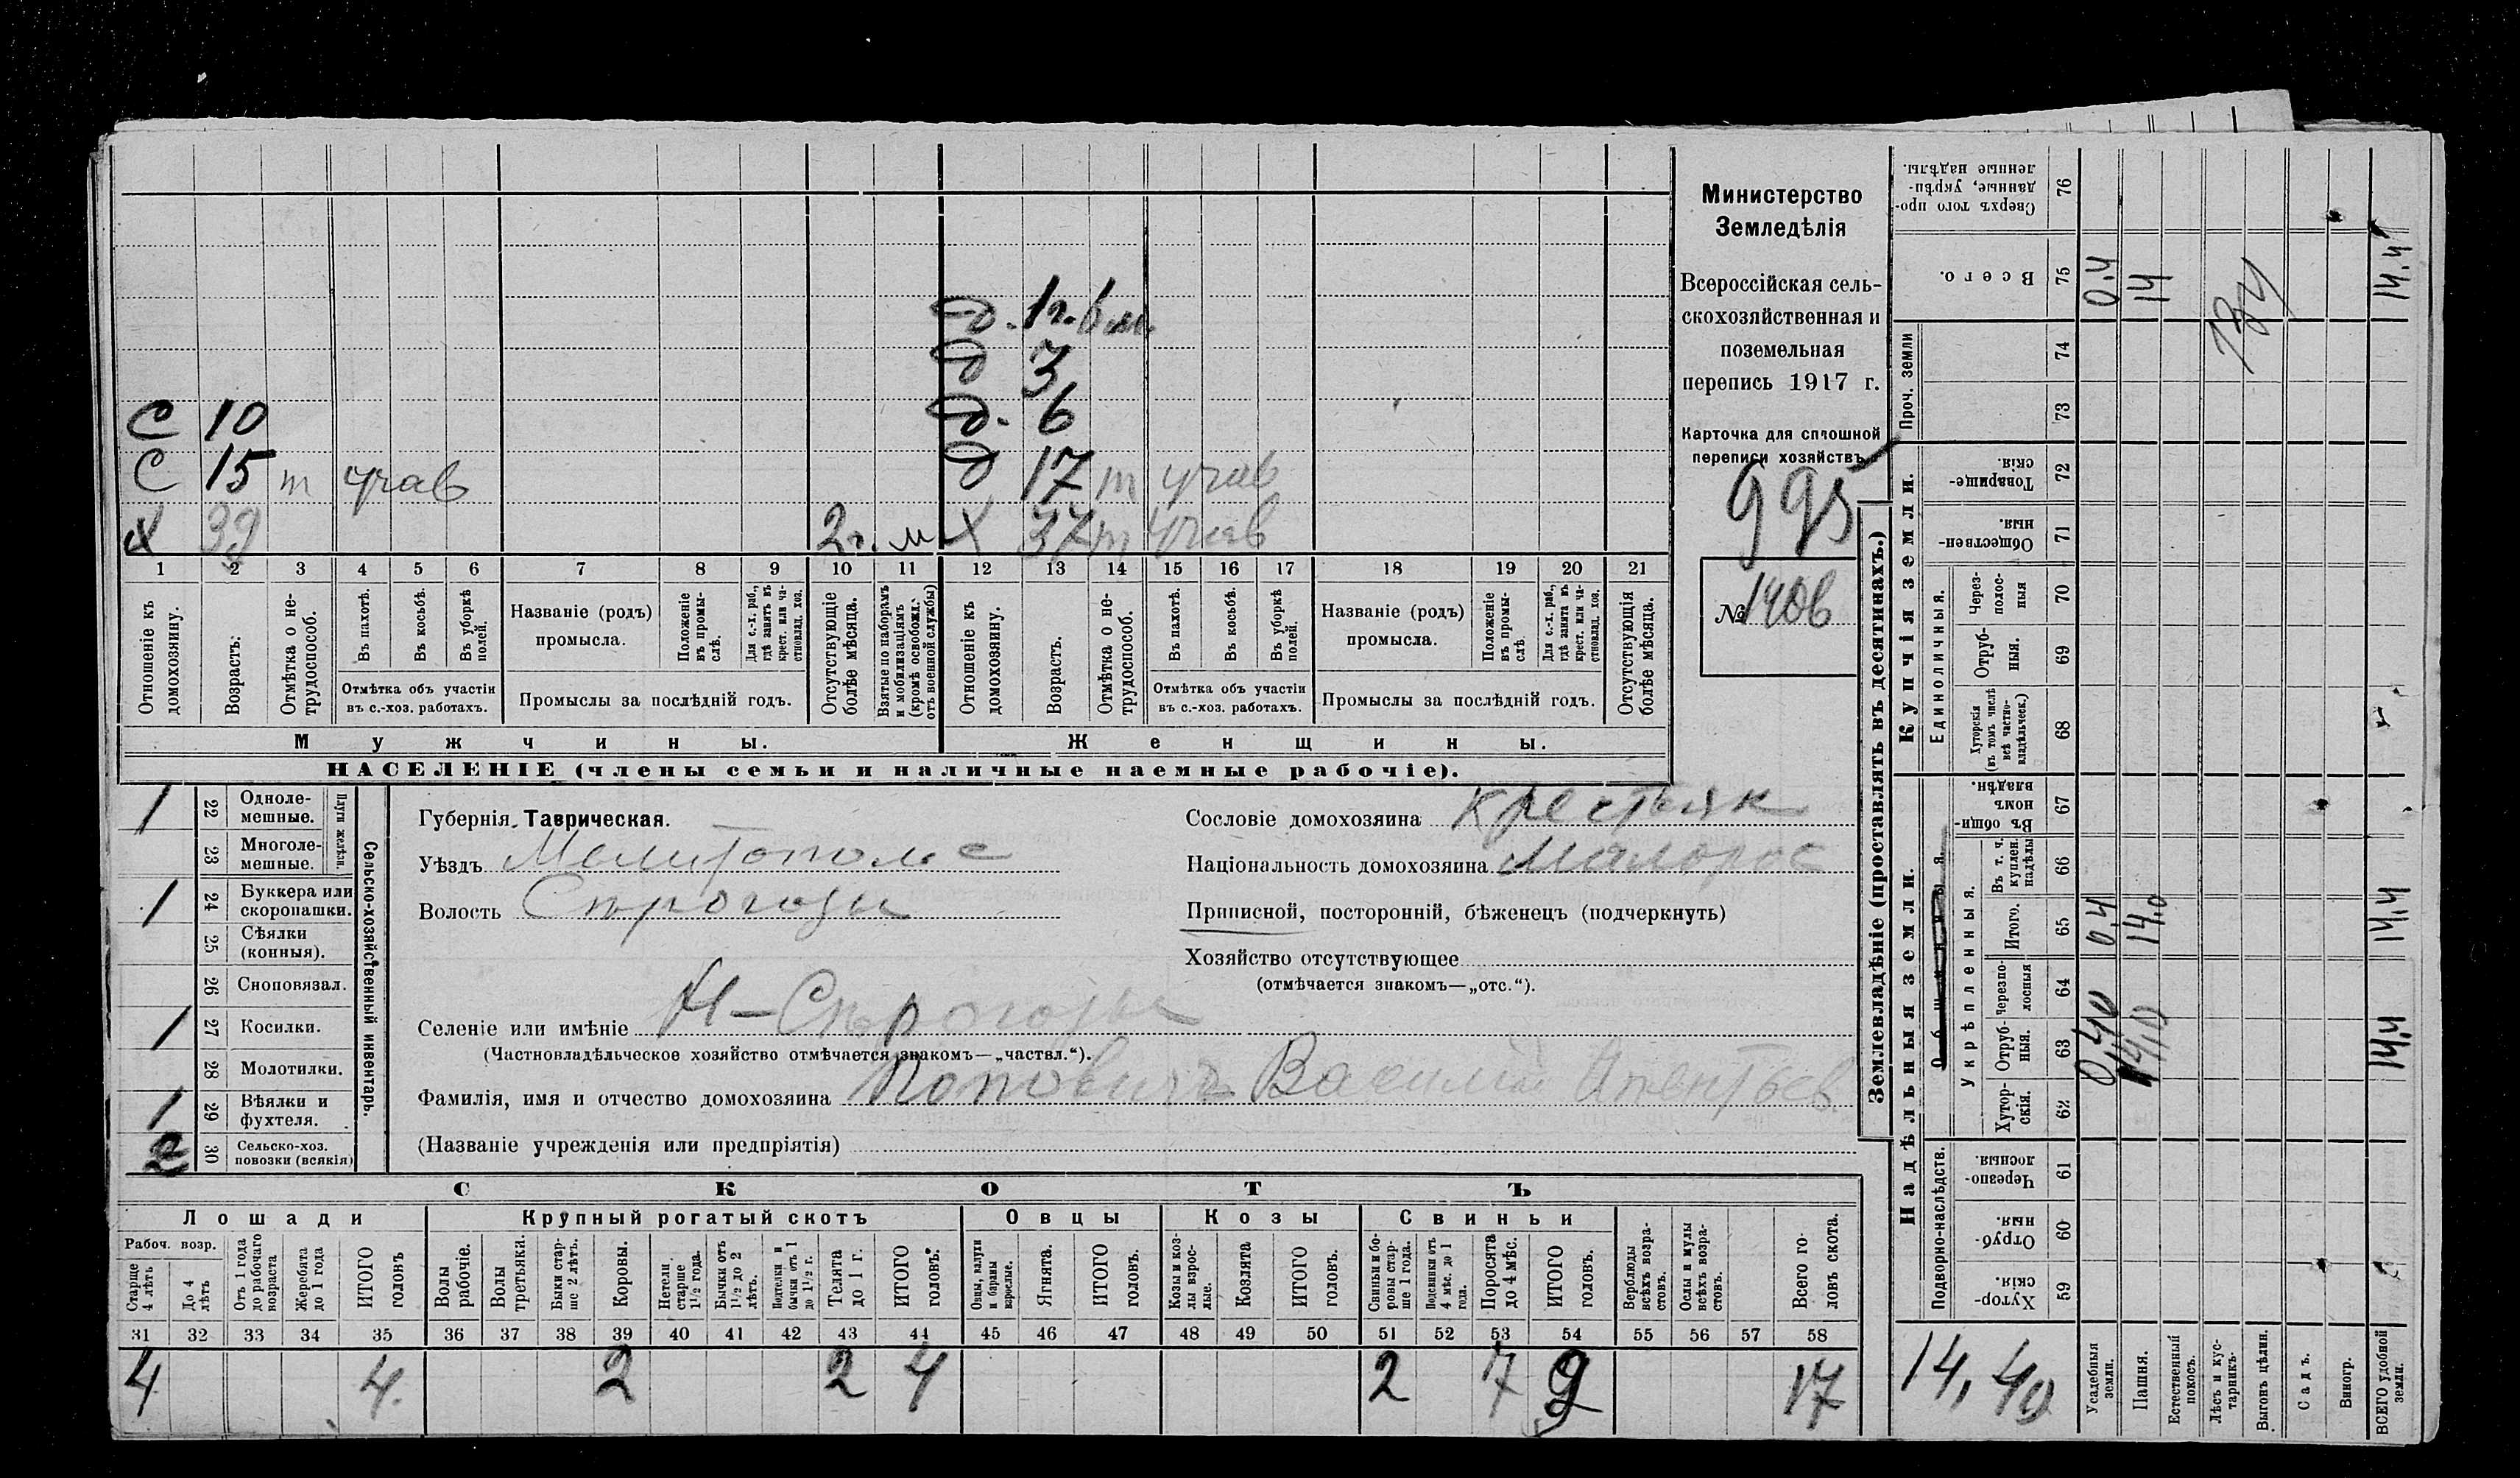 д. 1г. 6 м.
д 3
С 10 д. 6
С 15 т учав д 17 т учав
х 39 2г. м х 37 т учав
1 2 3 4 5 6 7 8 9 10 11 12 13 14 15 16 17 18 19 20 21
Отношеніе къ домохозяину.
Возрастъ.
Отмѣтка о не-
трудоспособ.
Въ пахотѣ.
Въ косьбѣ.
Въ уборкѣ
полей.
Отмѣтка объ участіи
въ с.-хоз. работахъ.
Названіе (родъ)
промысла.
Положеніе
въ промы-
слѣ.
Для с.-х. раб.,
гдѣ занятъ въ
крест. или ча-
стновлад. хоз.
Промыслы за послѣдній годъ.
Отсутствующіе
болѣе мѣсяца.
Взятые по наборамъ
и мобилизаціямъ
(кромѣ освобожд.
отъ военной службы)
Отношеніе къ
домохозяину.
Возрастъ.
Отмѣтка о не-
трудоспособ.
Въ пахотѣ.
Въ косьбѣ.
Въ уборкѣ
полей.
Отмѣтка объ участіи
въ с.-хоз. работахъ.
Названіе (родъ)
промысла.
Положеніе
въ промы-
слѣ.
Для с.-х. раб.,
гдѣ занятъ въ
крест. или ча-
стновлад. хоз.
Промыслы за послѣдній годъ.
Отсутствующія
болѣе мѣсяца.
Мужчины. Женщины.
НАСЕЛЕНІЕ (члены семьи и наличные наемные рабочіе).
Министерство
Земледѣлія
Всероссійская сель-
скохозяйственная и
поземельная
перепись 1917 г.
Карточка для сплошной
переписи хозяйствъ.
995
№ 1406
Сельско-хозяйственный инвентарь.
Плуги желѣзн.
1 22 Одноле-
мешные.
23 Многоле-
мешные.
1 24 Буккера или
скоропашки.
25 Сѣялки
(конныя).
26 Сноповязал.
1 27 Косилки.
28 Молотилки.
1 29 Вѣялки и
фухтеля.
2 30 Сельско-хоз.
повозки (всякія)
Губернія Таврическая.
Уѣздъ Мелитопольс
Волость Сѣрогозы
Сословіе домохозяина Крестьян
Національность домохозяина Малорос
Приписной, посторонній, бѣженецъ (подчеркнуть)
Хозяйство отсутствующее
(отмѣчается знакомъ—„отс.“).
Селеніе или имѣніе Н-Сѣрогозы
(Частновладѣльческое хозяйство отмѣчается знакомъ—„частвл.“).
Фамилія, имя и отчество домохозяина Поповичъ Василій
(Названіе учрежденія или предпріятія)
СКОТЪ
Лошади Крупный рогатый скотъ Овцы Козы Свиньи
Рабоч. возр.
Старше
4 лѣтъ
До 4
лѣтъ
Отъ 1 года
до рабочаго
возраста
Жеребята
до 1 года
ИТОГО
головъ
Волы
рабочіе.
Волы
третьяки.
Быки стар-
ше 2 лѣтъ.
Коровы.
Нетели
старше
1 1/2 года.
Бычки отъ
1 1/2 до 2
лѣтъ.
Подтелки и
бычки отъ 1
до 1 1/2 г.
Телята
до 1 г.
ИТОГО
головъ.
Овцы, валухи
и бараны
взрослые.
Ягнята.
ИТОГО
головъ.
Козы и коз-
лы взрос-
лые.
Козлята
ИТОГО
головъ.
Свиньи и бо-
ровы стар-
ше 1 года.
Подсвинки отъ
4 мѣс. до 1
года.
Поросята
до 4 мѣс.
ИТОГО
головъ.
Верблюды
всѣхъ возра-
стовъ.
Ослы и мулы
всѣхъ возра-
стовъ.
Всего го-
ловъ скота.
31 32 33 34 35 36 37 38 39 40 41 42 43 44 45 46 47 48 49 50 51 52 53 54 55 56 57 58
4 4. 2 2 4 2 7 9 17
Землевладѣніе (проставлять въ десятинахъ.)
Надѣльныя земли.
Купчія земли.
Проч. земли
Подворно-наслѣдств.
Общинныя.
Укрѣпленныя.
Единоличныя.
Сверхъ того про-
данные, укрѣп-
ленные надѣлы.
76
Всего.
75 0.4 14 14.4
74
73
Товарище-
скія.
72
Обществен-
ныя.
71
Через-
полос-
ныя
70
Отруб-
ныя.
69
Хуторскія
(въ томъ числѣ
всѣ частно-
владѣльческ.)
68
Въ общин-
номъ
владѣн.
67
Въ т. ч.
куплен.
надѣлы
66
Итого.
65 0,4 14.0 14.4
Черезпо-
лосныя
64
Отруб-
ныя.
63 0,40 14,0 14.4
Хутор-
скія.
62
Черезпо-
лосныя.
61
Отруб-
ныя.
60
Хутор-
скія.
59
14,40
Усадебныя
земли.
Пашня.
Естественный
покосъ.
Лѣсъ и кус-
тарникъ.
Выгонъ цѣлин.
Садъ.
Виногр.
ВСЕГО удобной
земли.